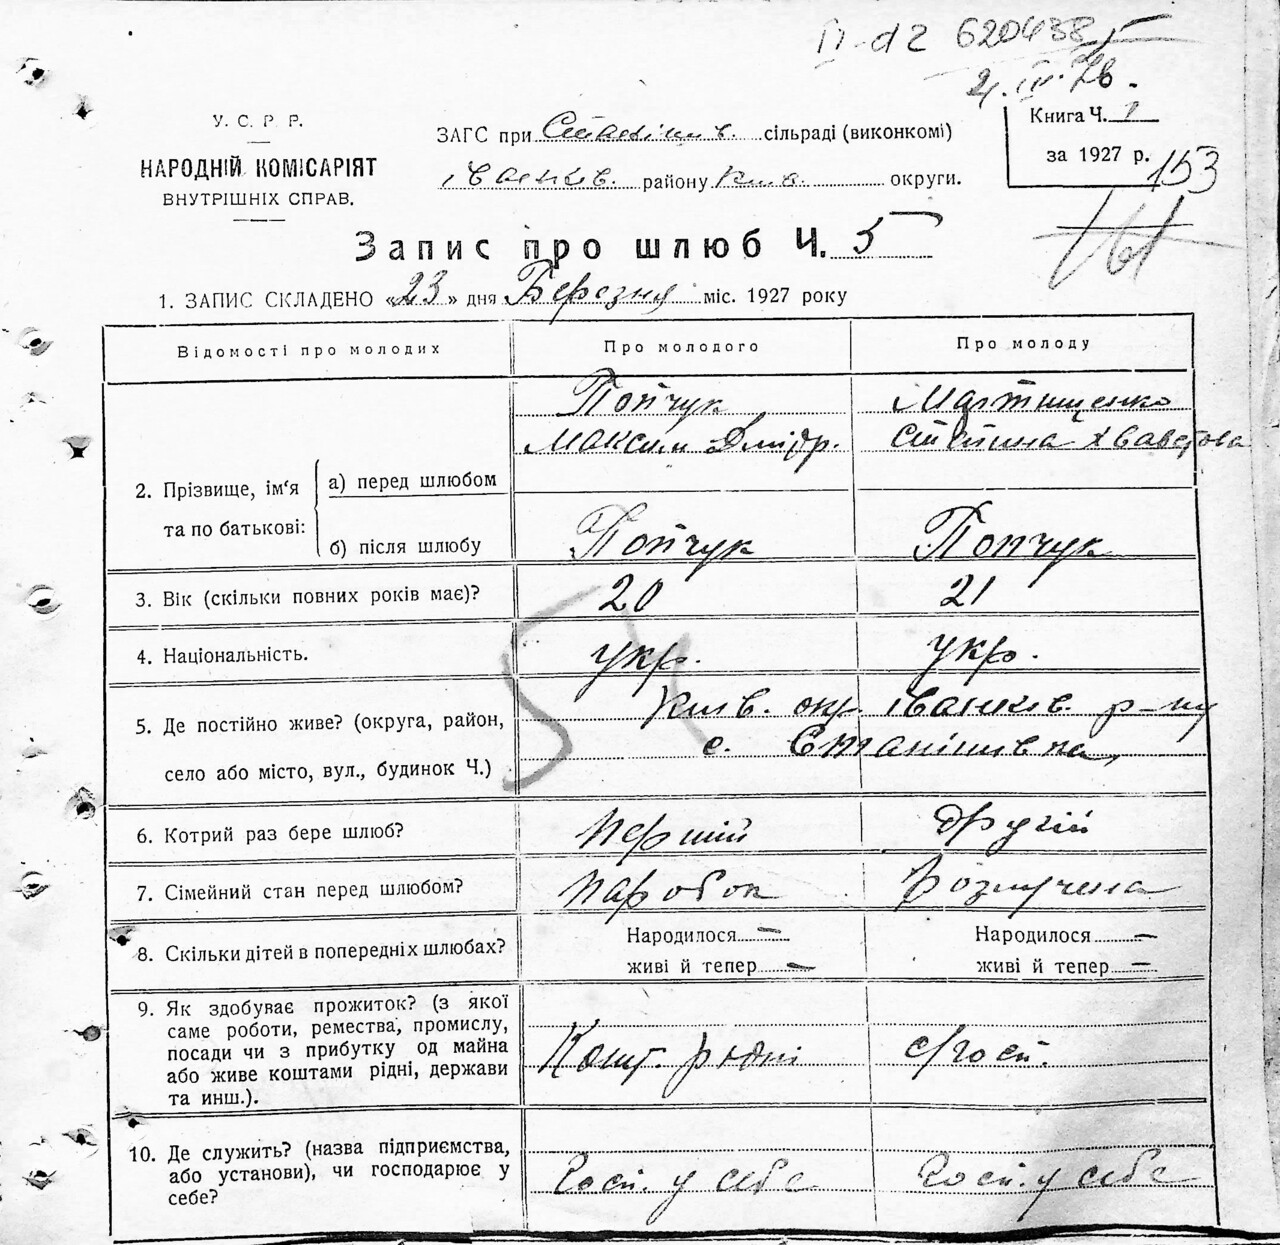 П-d2 620438
2.III.76.
У. С. Р. Р.
НАРОДНІЙ КОМІСАРІЯТ
ВНУТРІШНІХ СПРАВ.
ЗАГС при Станішів. сільраді (виконкомі)
Іванків. району Київ. округи.
Книга Ч. 1
за 1927 р.
153
161
Запис про шлюб Ч. 5
1. ЗАПИС СКЛАДЕНО «23» дня Березня міс. 1927 року
Відомості про молодих
Про молодого
Про молоду
2. Прізвище, ім'я
та по батькові:
а) перед шлюбом
Попчук
Максим Дмідр.
Мартищенко
б) після шлюбу
Попчук
Попчук
3. Вік (скільки повних років має)?
20
21
4. Національність.
укр.
укр.
5. Де постійно живе? (округа, район,
село або місто, вул., будинок Ч.)
Київ. окр. Іванків. р-ну
с. Станішівка,
6. Котрий раз бере шлюб?
Перший
Другій
7. Сімейний стан перед шлюбом?
Паробок
Розлучена
8. Скільки дітей в попередніх шлюбах?
Народилося —
живі й тепер —
Народилося —
живі й тепер —
9. Як здобуває прожиток? (з якої
саме роботи, ремества, промислу,
посади чи з прибутку од майна
або живе коштами рідні, держави
та инш.).
Кошт. рідні
с/госп.
10. Де служить? (назва підприємства,
або установи), чи господарює у
себе?
Госп. у себе
Госп. у себе